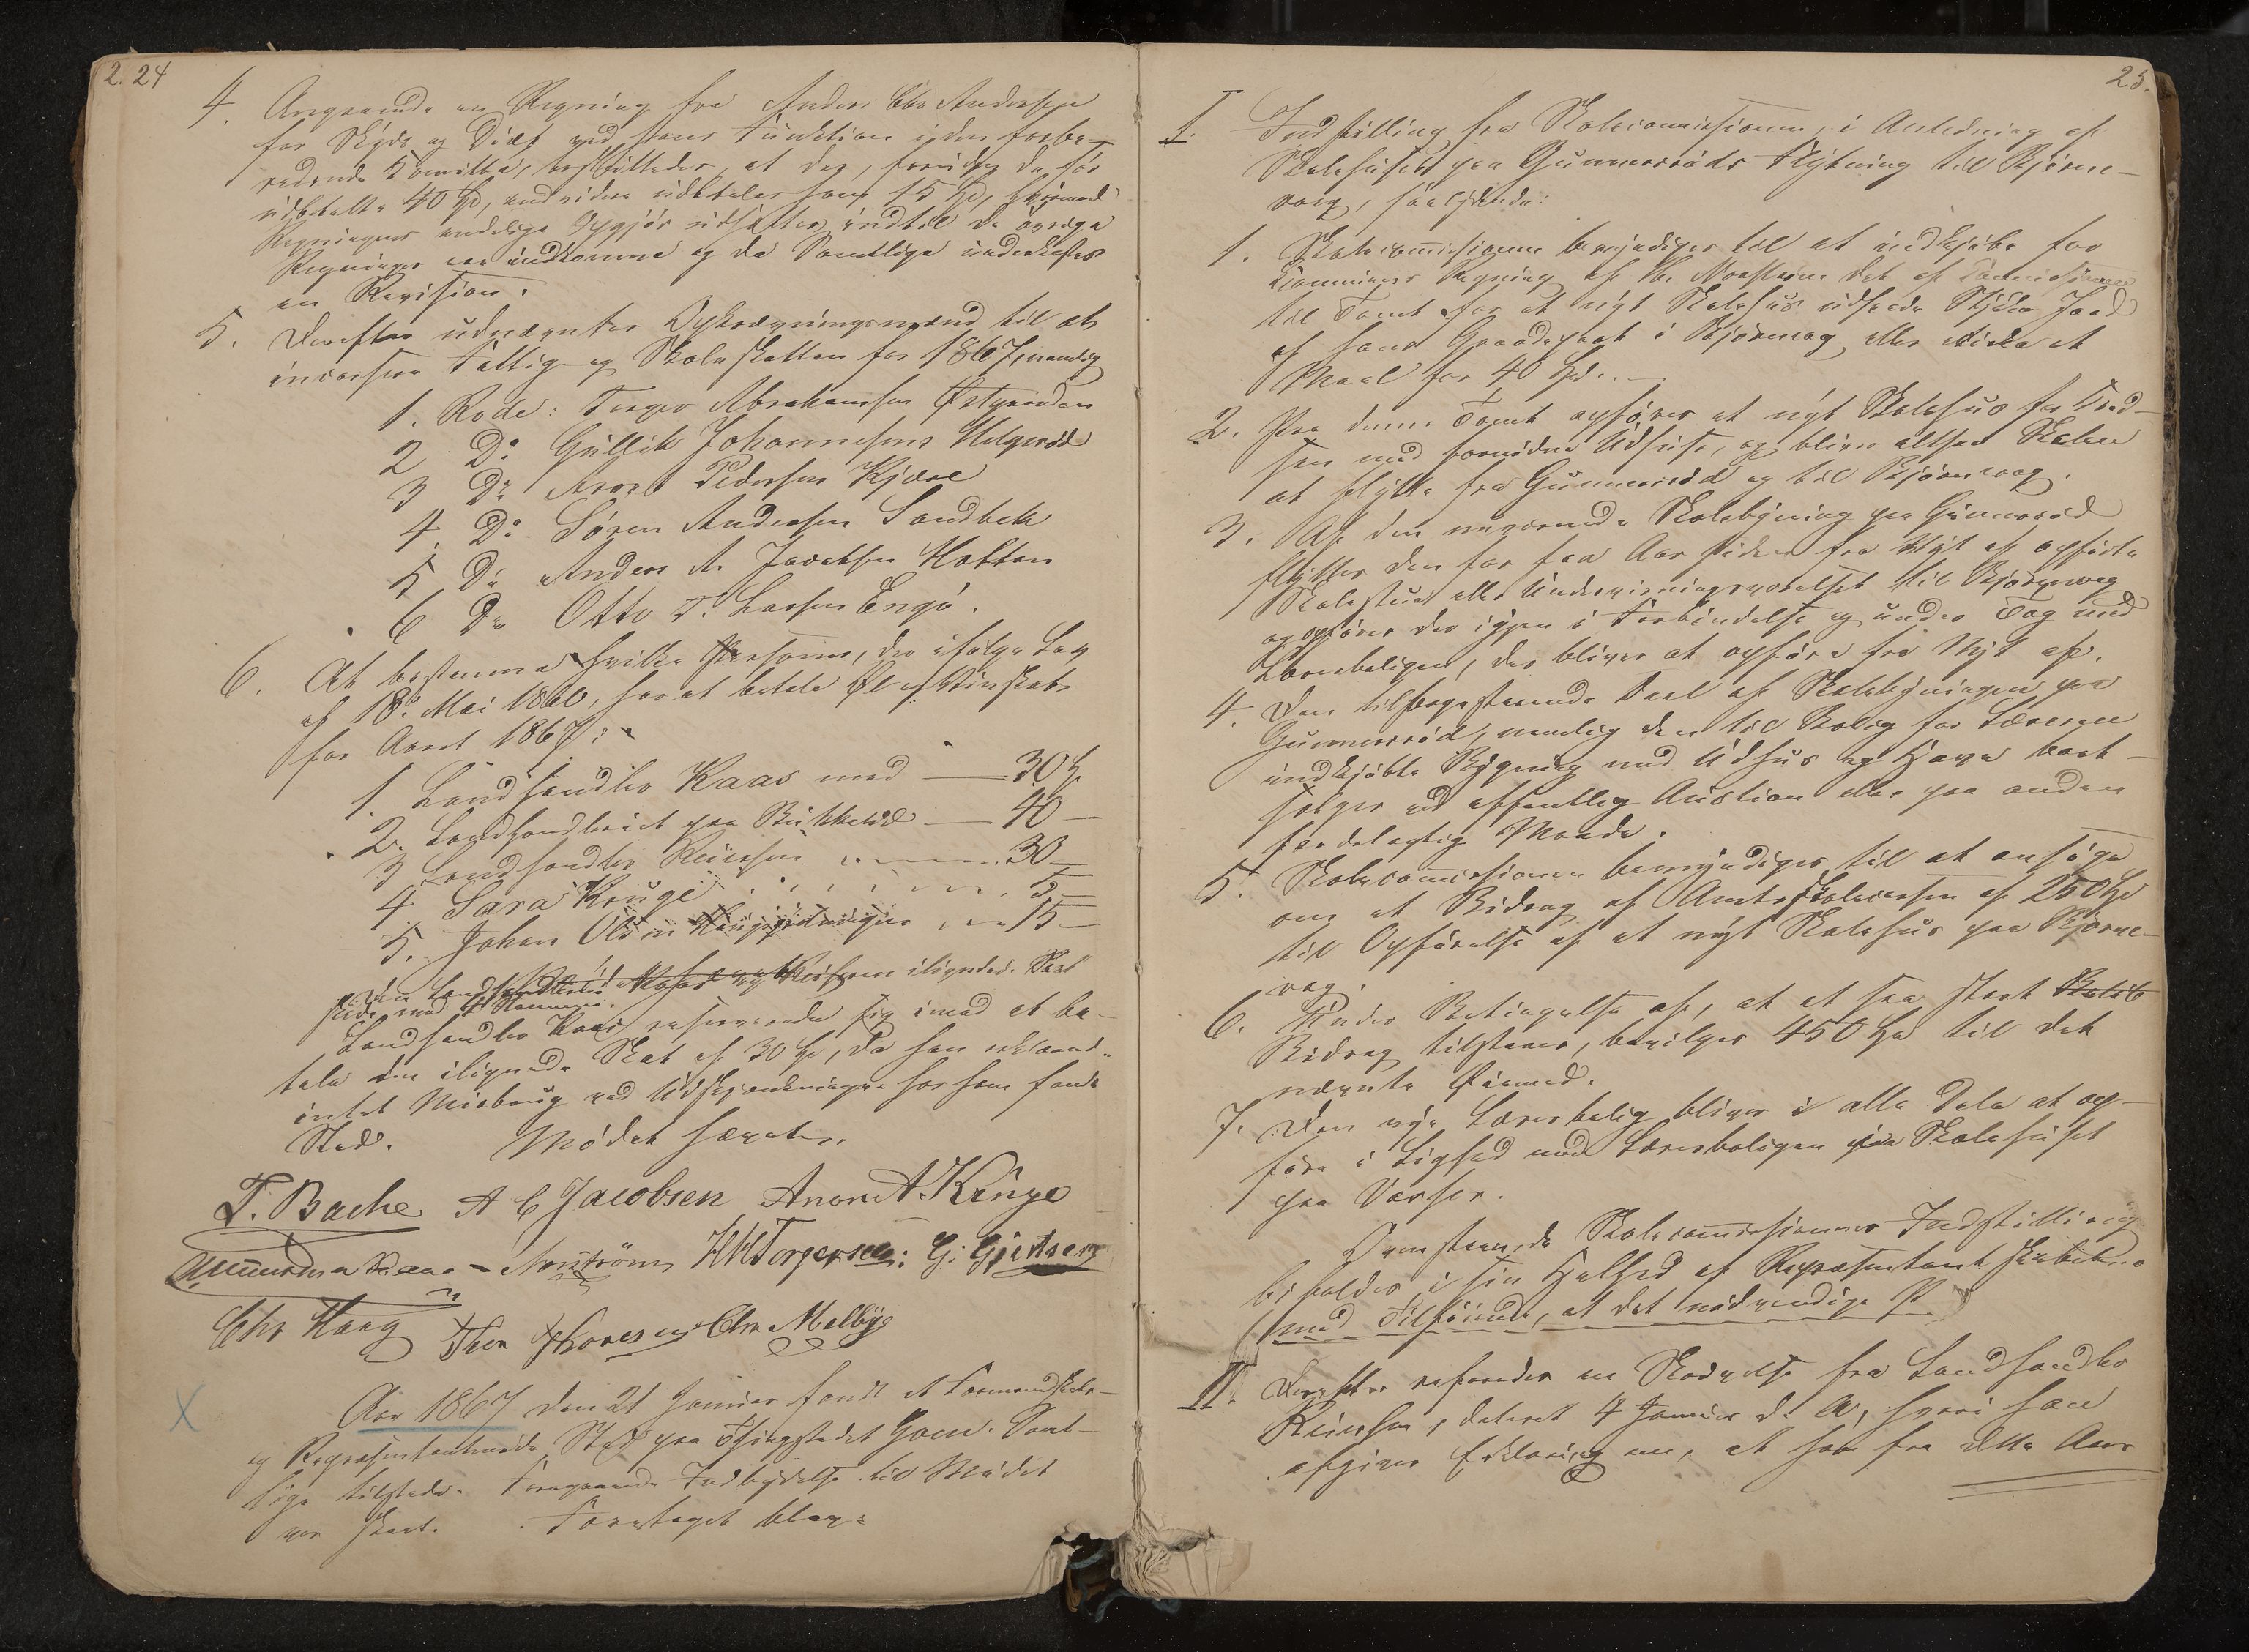 2. 24
4. Angaaende en Regning fra Anders Chr Andersen
for Skyds og Diæt ved hans Funktion i den forbe-
redende Komitte, besluttedes at der, foruden de før
udbetalte 40 Spd, endvidere udbetales ham 15 Spd, hvorimod
Regningens endelige Opgjør udsættes indtil de øvrige
Regninger ere indkomne og da Samtlige underkastes
en Revision.
5. Derefter udnævntes Opkrævningsmænd til at
incassere Fattig- og Skoleskatten for 1867, nemlig
1. Rode: Torger Abrahamsen Østgaarden
2 Do Gullik Johannesens Helgerød
3 Do Aron Pedersen Kjære
4. Do Søren Andersen Sandbek
5 Do Anders A. Jacobsen Holtan
6 Do Otto T. Larsen Engø.
6. At bestemme hvilke Personer, der ifølge Lov
af 18de Mai 1860, har at betale Øl og Vinskat
for Aaret 1867:
1. Landhandler Kaas med — 30 Sp
2. Landhandleriet paa Bukketvid — 40 —
3 Landhandler Reiersen 30 —
4 Sara Kruge 5 —
5. Johan Olsen 15 —
Den Landhandlerne Kaas og Reiersen ilignede Skat
skede med 4 Stemmer.
Landhandler Kaas reserverede sig imod at be-
tale den ilignede Skat af 30 Spd, da han erklærede
intet Misbrug ved Udskjænkningen hos ham fandt
Sted. Mødet hævet.
T. Bache A C Jacobsen Anon A Kruge
Amundsen Kaas Norstrøm H H Torgersen: G: Gjertsen
Chr Haug Thor Thoresen Chr Melbye
X Aar 1867 den 21 Januar fandt et Formandskabs-
og Repræsentantmøde Sted paa Thingstedet Gaen. Samt-
lige tilstede. Foregaaende Indbydelse til Mødet
var skeet. Foretaget blev:
25.
I. Indstilling fra Skolecommissionen, i Anledning af
Skolehuset paa Gunnersrøds Flytning til Bjørne-
vaag, saalydende:
1. Skolecommissionen bemyndiges til at indkjøbe for
Communens Regning af Hr. Norstrøm det af Commissionen
til Tomt for et nyt Skolehus udseede Stykke Jord
af hans Gaardepart i Bjørnevaag, eller cirka et
Maal for 40 Spd. —
2. Paa denne Tomt opføres et nyt Skolehus for Kred-
sen med fornødne Udhuse, og bliver altsaa Skolen
at flytte fra Gunnersrød og til Bjørnevaag.
3. Af den nuværende Skolebygning paa Gunnersrød
flyttes den for faa Aar siden fra Nyt af opførte
Skolestue eller Undervisningsværelset til Bjørnevaag
og opføres der igjen i Forbindelse og under Tag med
Lærerboligen, der bliver at opføre fra Nyt af.
4. Den tilbagestaaende Deel af Skolebygningen paa
Gunnersrød, nemlig den til Bolig for Læreren
indkjøbte Bygning med Udhus og Have bort-
sælges ved offentlig Auction eller paa anden
fordelagtig Maade.
5. Skolecommissionen bemyndiges til at ansøge
om et Bidrag af Amtsskolecassen af 250 Spd
til Opførelse af et nyt Skolehus paa Bjørne-
vaag.
6. Under Betingelse af, at et saa stort
Bidrag tilstaaes, bevilges 450 Spd til det
nævnte Øiemed.
7. Den nye Lærerbolig bliver i alle Dele at op-
føre i Lighed med Lærerboligen i Skolehuset
paa Vasser.
Ovenstaaende Skolecommissionens Indstilling
bifaldes i sin Helhed af Repræsentantskabet
med Tilføiende, at det nødvendige
II. Derefter refereredes en Skrivelse fra Landhandler
Reiersen, dateret 4 Januar d. A, hvori han
afgiver Erklæring om, at han fra dette Aars